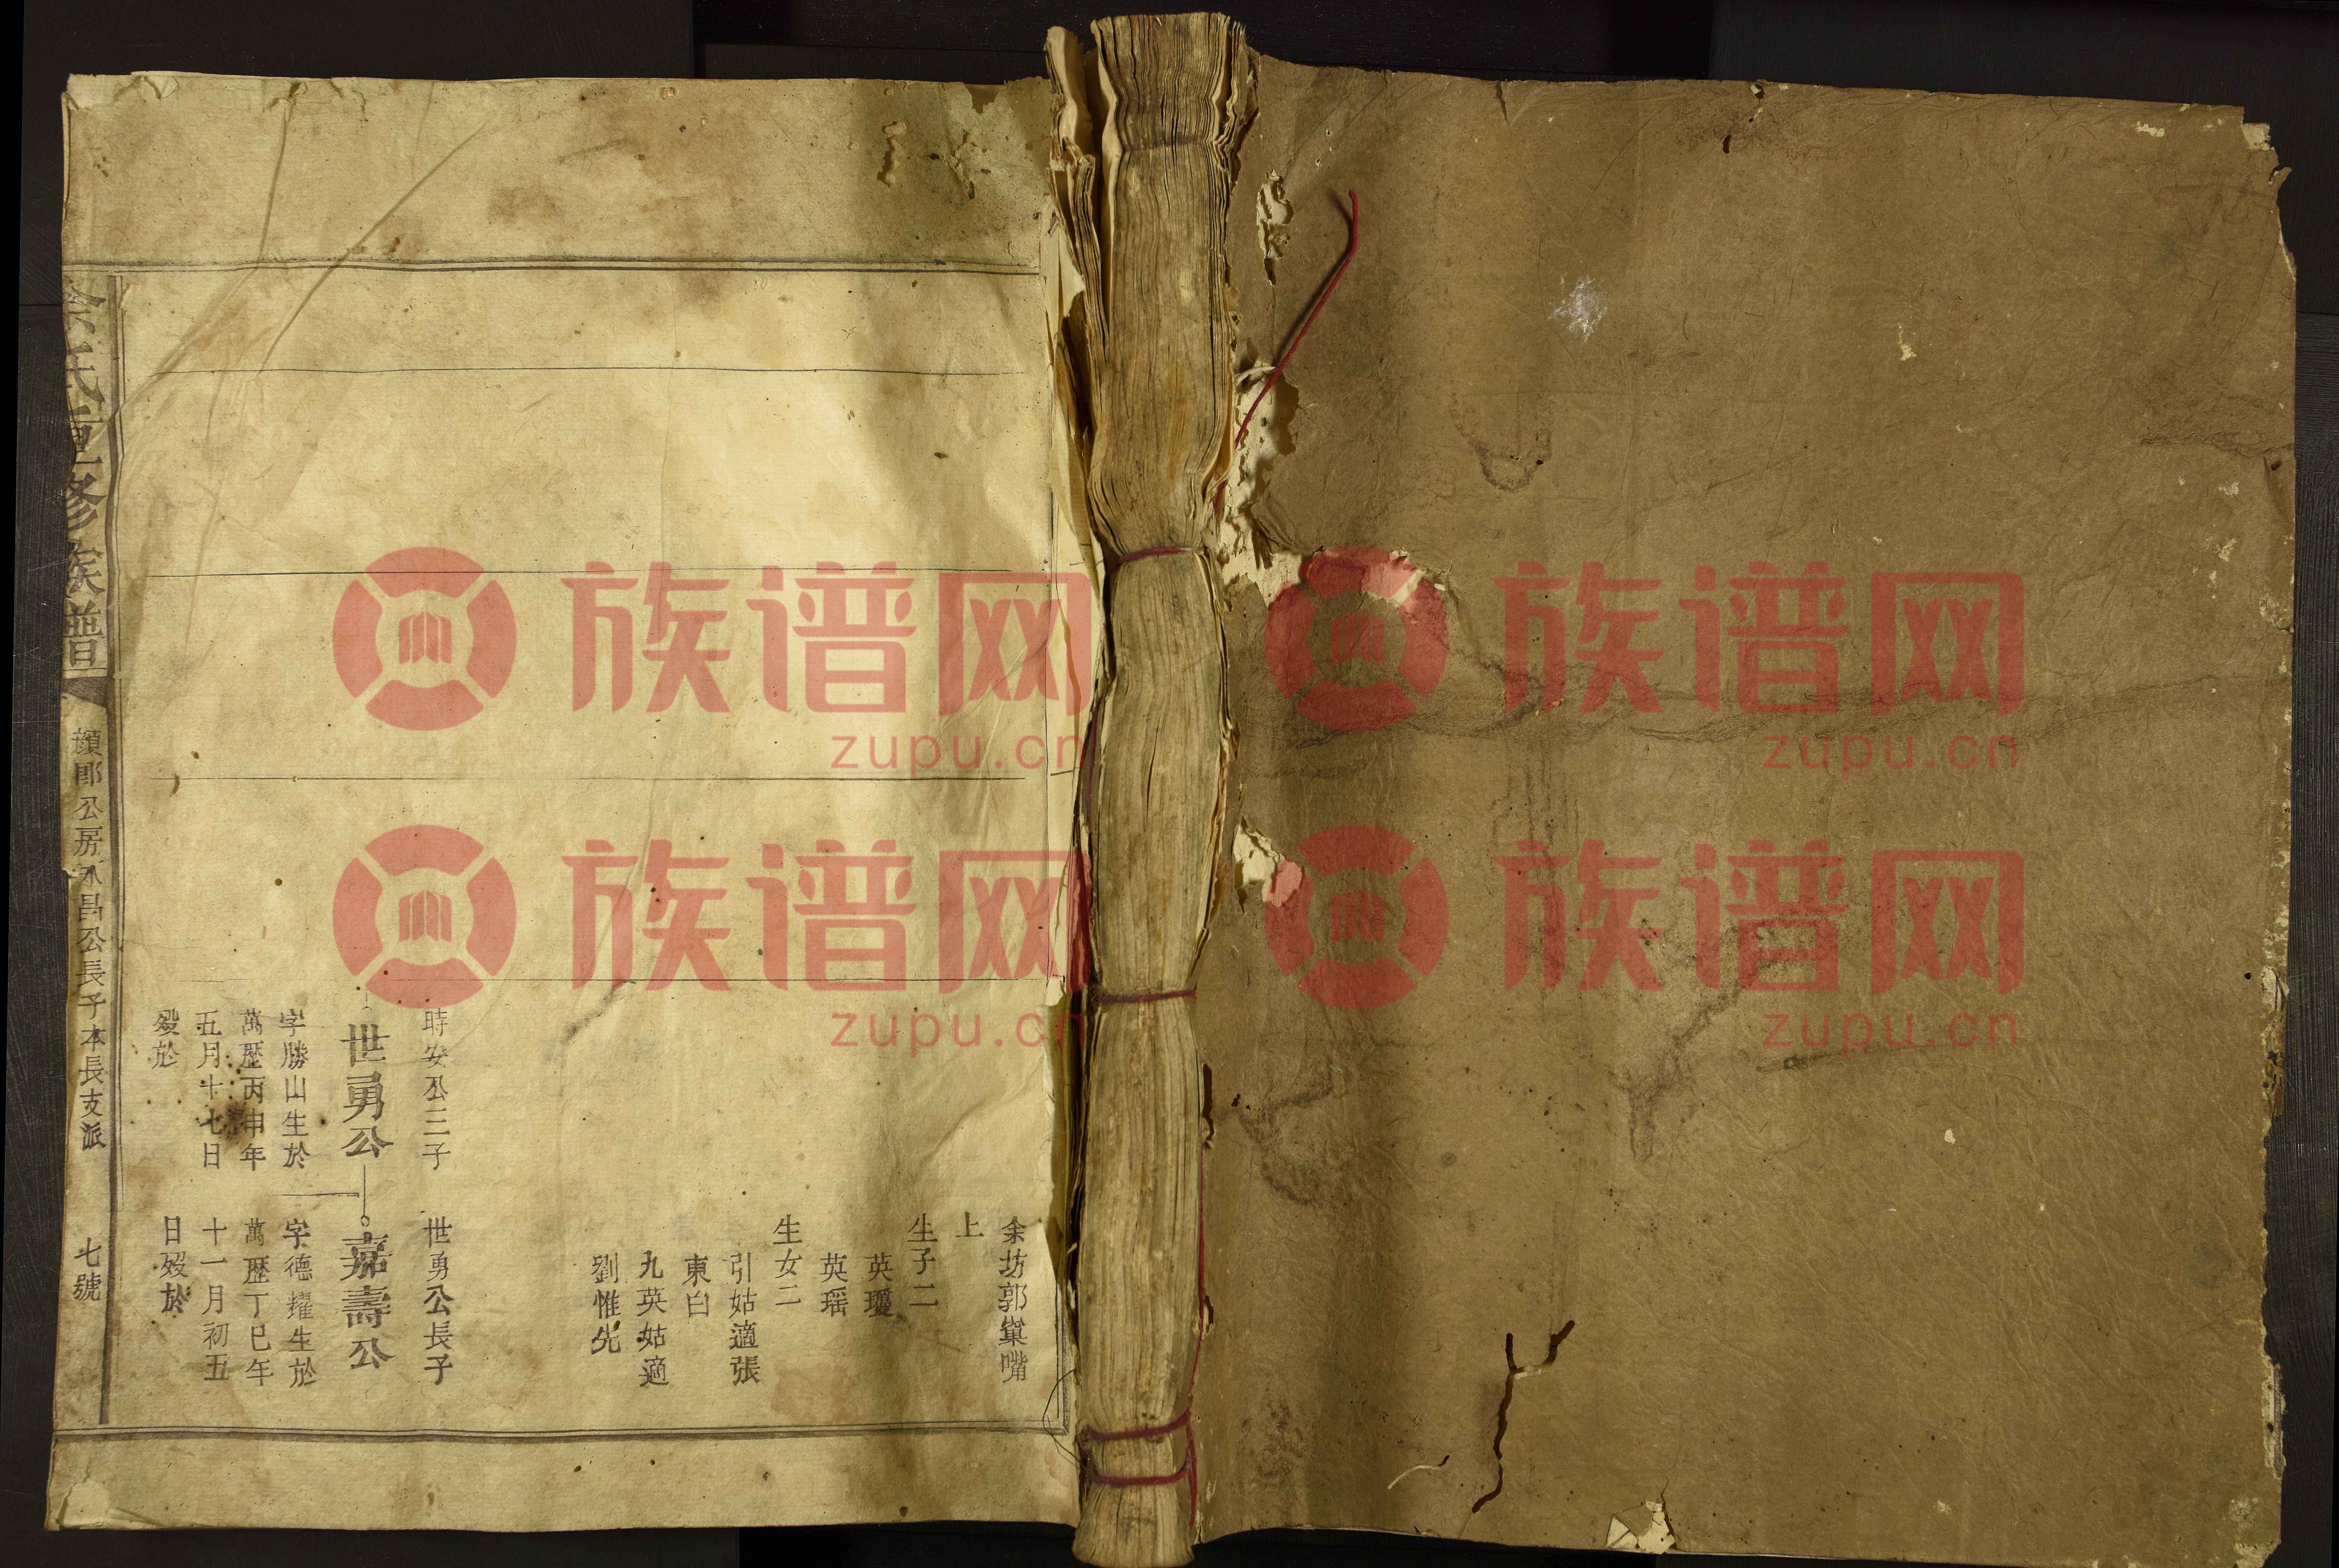 余坊郭巢嘴
上
生子二
英瓊
英瑶
生女二
引姑適張
東白
九英姑適
劉惟先
時安公三子
世勇公
字勝山生於
萬歷丙申年
五月十七日
歿於
世勇公長子
嘉壽公
字德耀生於
萬歷丁巳年
十一月初五
日歿於
余氏重修族譜
公房永昌公長子本長支派
七號
族谱网
zupu.cn
族谱网
zupu.cn
族谱网
zupu.cn
族谱网
zupu.cn